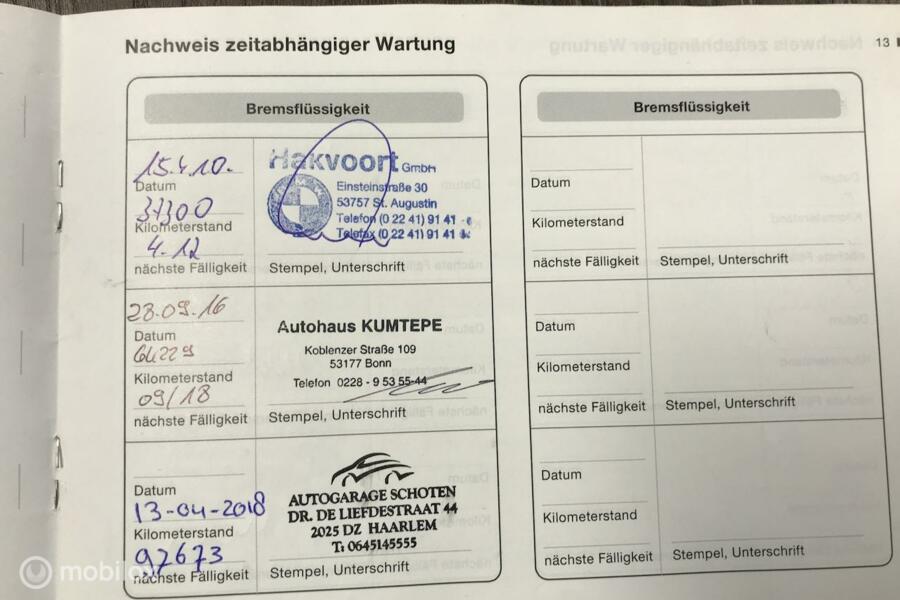 Nachweis zeitabhängiger Wartung
13
Bremsflüssigkeit
15.4.10.
Datum
31300
Kilometerstand
4.12
nächste Fälligkeit
Hakvoort GmbH
Einsteinstraße 30
53757 St. Augustin
Telefon (0 22 41) 91 41
Telefax (0 22 41) 91 41
Stempel, Unterschrift
28.09.16
Datum
64229
Kilometerstand
09/18
nächste Fälligkeit
Autohaus KUMTEPE
Koblenzer Straße 109
53177 Bonn
Telefon 0228 - 9 53 55-44
Stempel, Unterschrift
Datum
13-04-2018
Kilometerstand
97673
nächste Fälligkeit
AUTOGARAGE SCHOTEN
DR. DE LIEFDESTRAAT 44
2025 DZ HAARLEM
T: 0645145555
Stempel, Unterschrift
Bremsflüssigkeit
Datum
Kilometerstand
nächste Fälligkeit
Stempel, Unterschrift
Datum
Kilometerstand
nächste Fälligkeit
Stempel, Unterschrift
Datum
Kilometerstand
nächste Fälligkeit
Stempel, Unterschrift